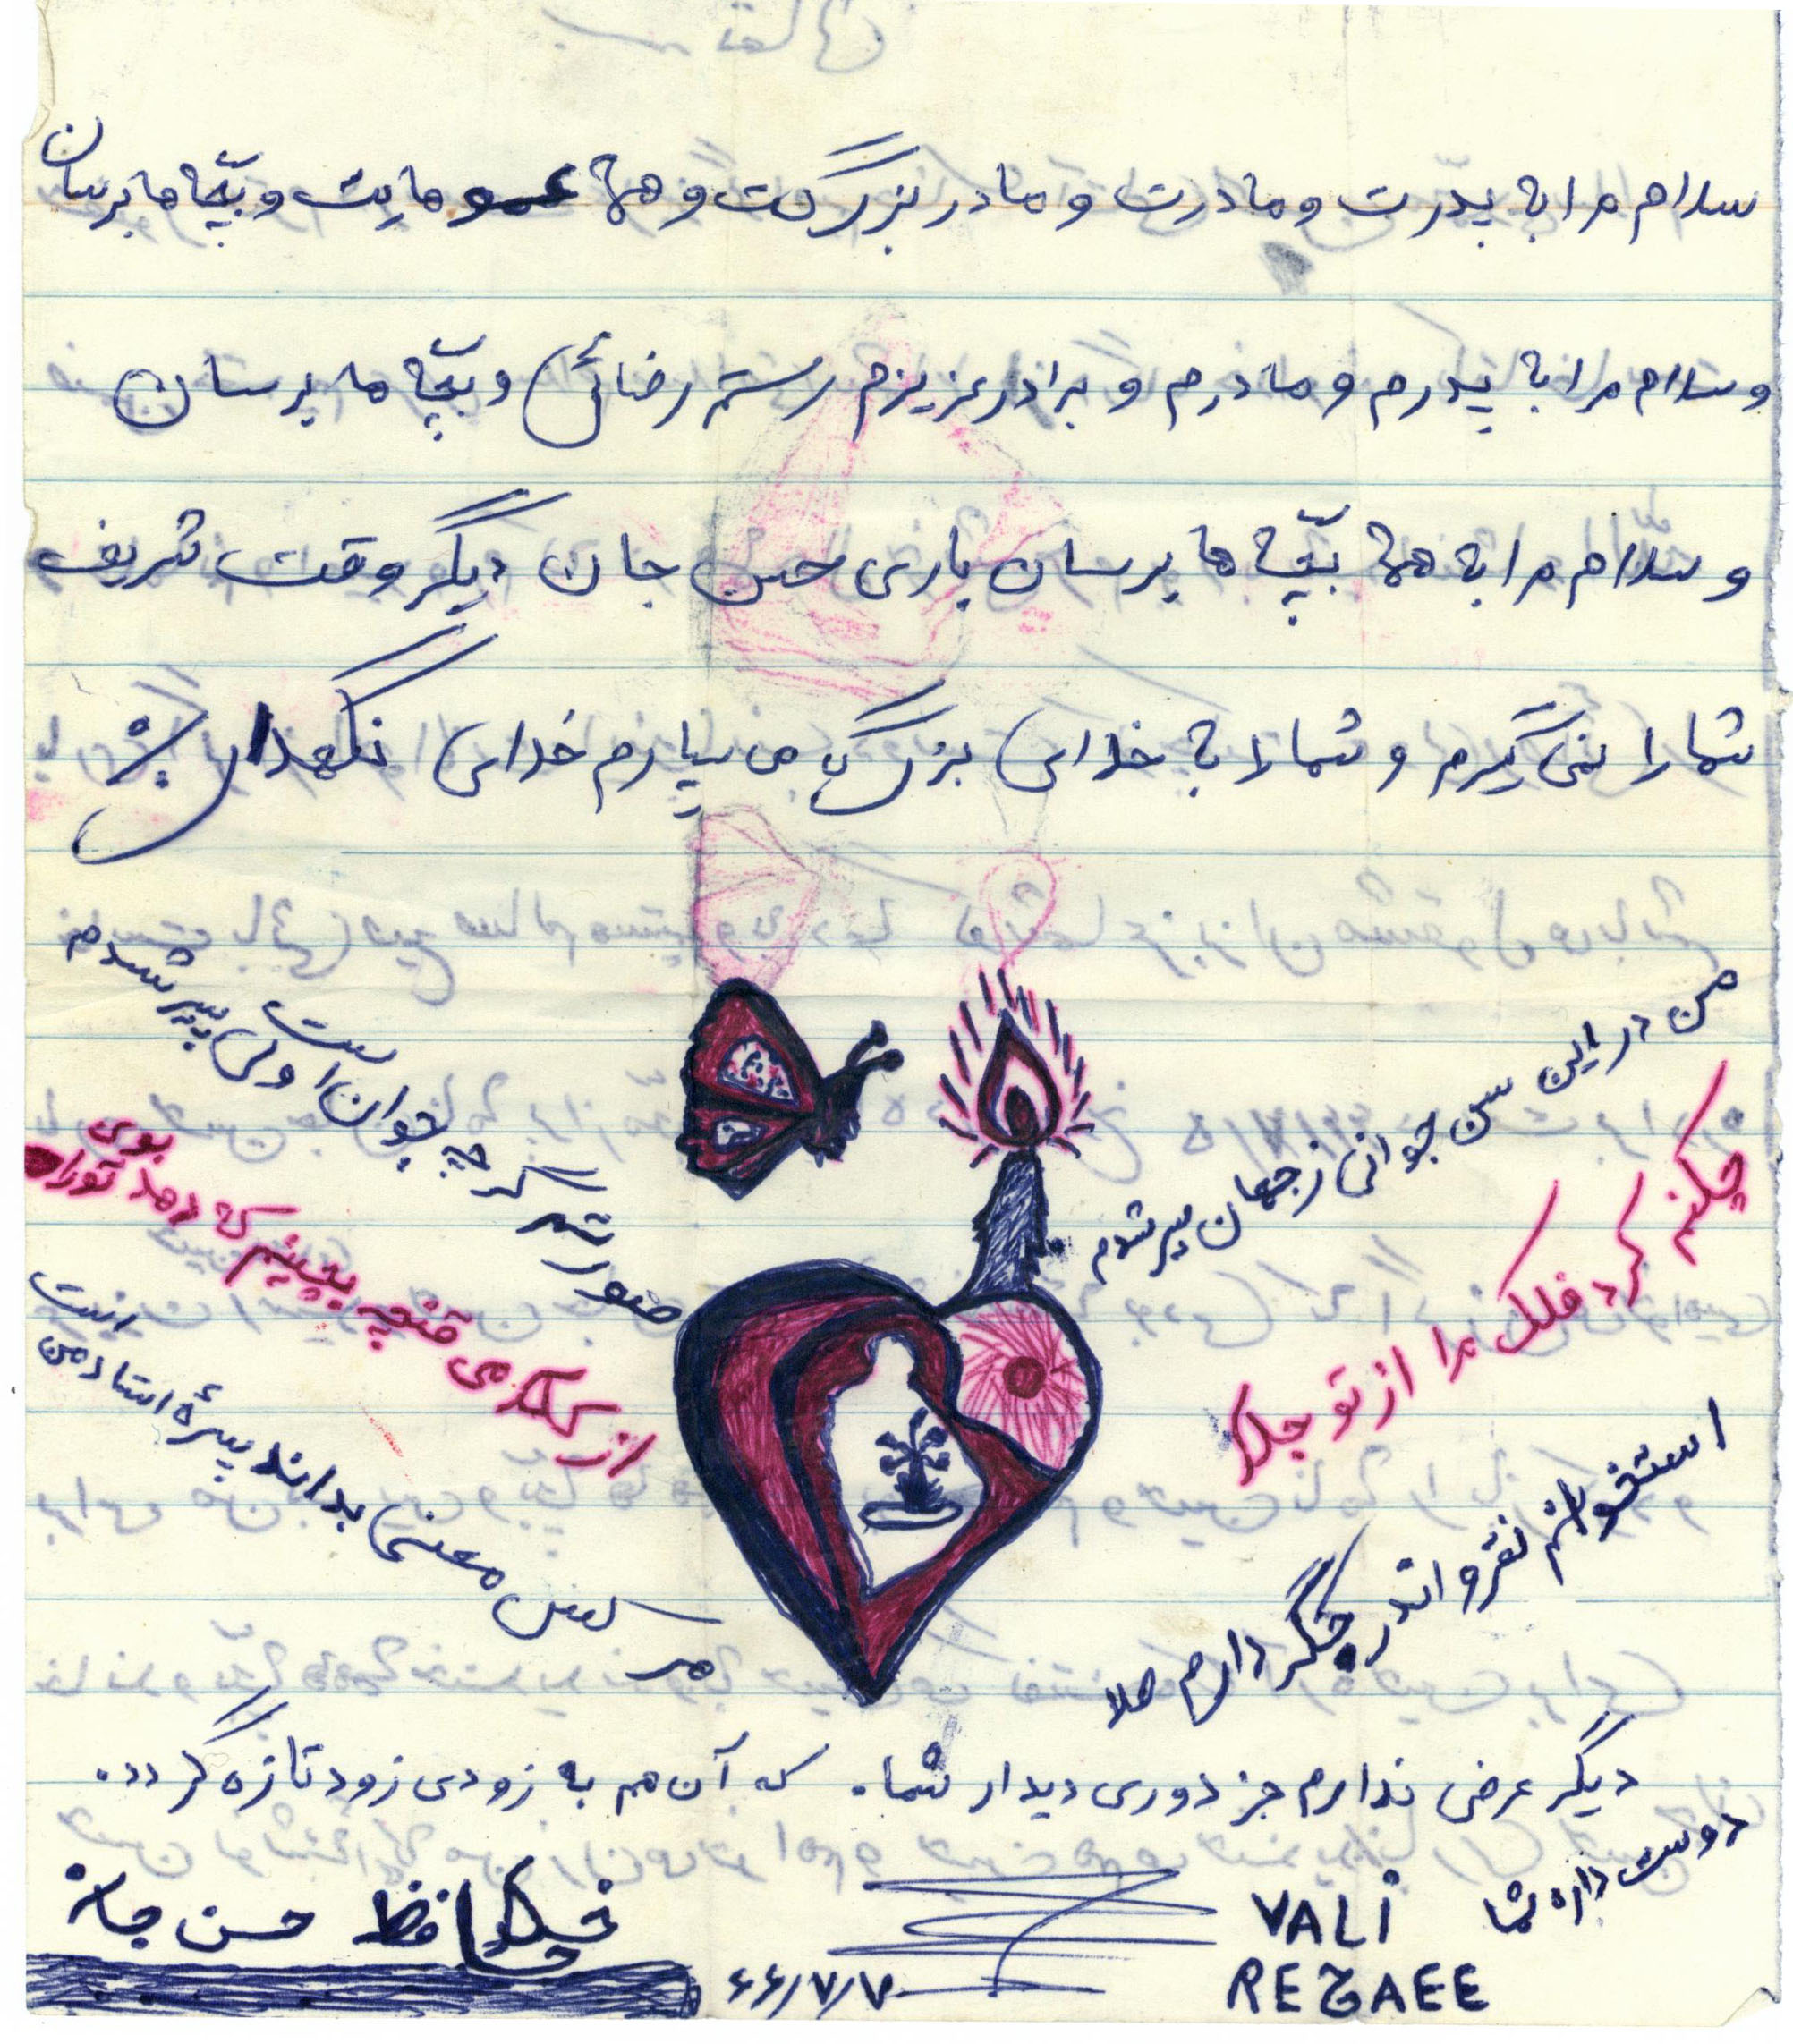 سلام مرا به پدرت و مادرت و مادر بزرگت و همه عموهایت و بچه ها برسان
و سلام مرا به پدرم و مادرم و برادر عزیزم رستم رضائی و بچه ها برسان
و سلام مرا به همه بچه ها برسان باری حسن جان دیگر وقت شریف
شما را نمی گیرم و شما را به خدای بزرگ می سپارم خدای نگهدار
من در این سن جوانی از جهان سیر شدم
صورتم گر چه جوان است ولی پیر شدم
چکنم کرد فلک مرا از تو جدا
از که گلی غنچه بچینم که دهد بوی تورا
استخوانم نقره اندر جگر دارم طلا
هر کس معنی بداند بیژۀ استاد من است
دیگر عرضی ندارم جز دوری دیدار شما. که آن هم به زودی زود تازه گردد.
دوست دار شما
VALi
REZAEE
۶۶/۷/۷
خداحافظ حسن جان